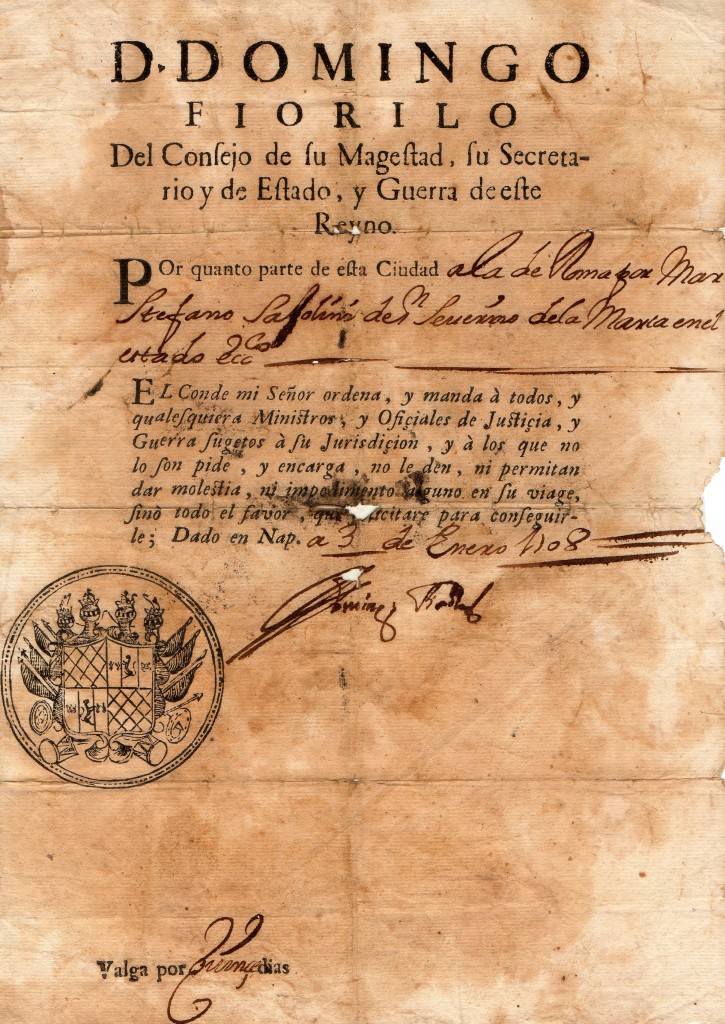 D. DOMINGO
FIORILO
Del Conſejo de ſu Mageſtad, ſu Secreta-
rio y de Eſtado, y Guerra de eſte
Reyno.
POr quanto parte de eſta Ciudad a la de Roma por Mar
Stefano de la Marca en el
estado ecc.
EL Conde mi Señor ordena, y manda à todos, y
qualeſquiera Miniſtros, y Ofiçiales de Juſtiçia, y
Guerra ſugetos à ſu Jurisdiçion, y à los que no
lo ſon pide, y encarga, no le den, ni permitan
dar moleſtia, ni impedimento alguno en ſu viage,
ſinò todo el favor, que para conſeguir-
le; Dado en Nap. a 3 de Enero 1708
Valga por quinçe dias